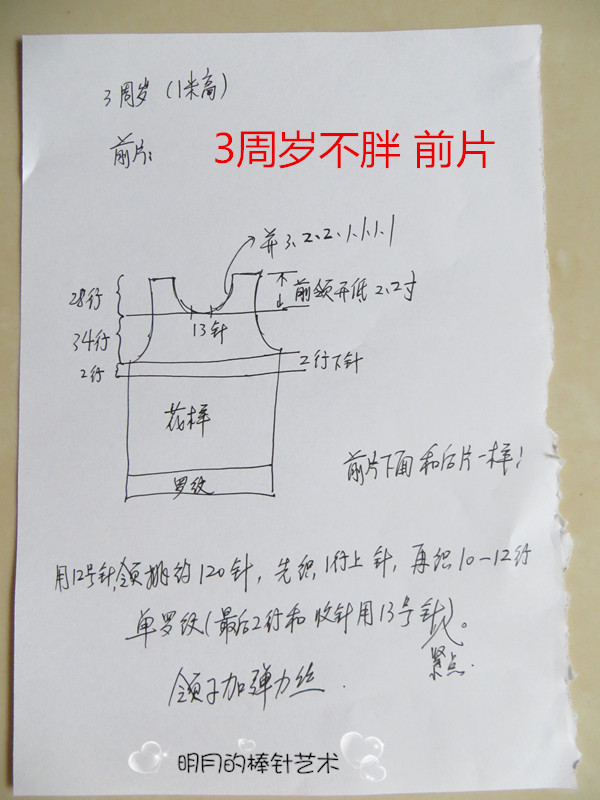 3周岁（1米高）
前片：
3周岁不胖 前片
并3、2、2、1、1、1、1
28行
前领开低2.2寸
13针
34行
2行
2行下针
花样
前片下面和后片一样！
罗纹
用12号针,领挑约120针，先织1行上针，再织10—12行
单罗纹(最后2行和收针用13号针)。
紧点.
领子加弹力丝.
明月的棒针艺术